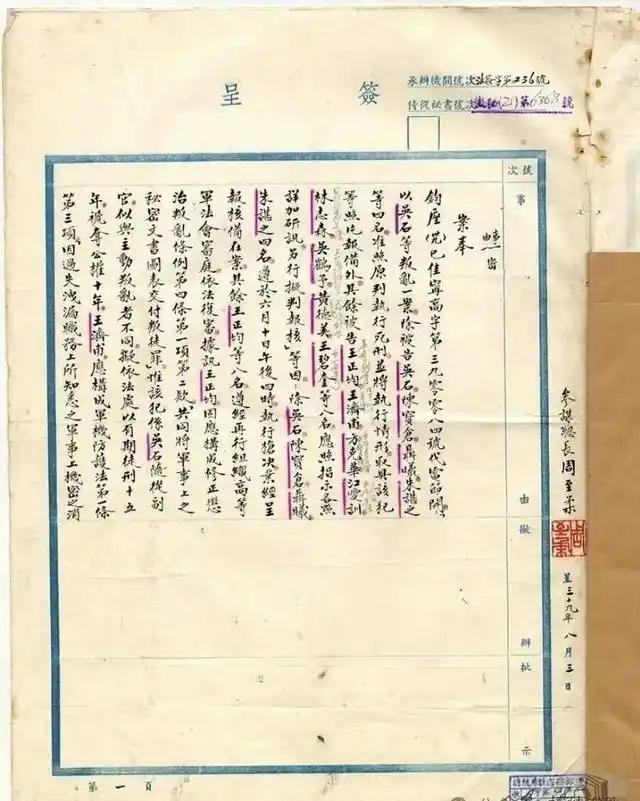 簽呈
承辦機關號次法簽字第236號
侍從秘書號次機秘(乙)第6368號
號次
事由
擬辦
批示
事由
密
案奉
鈞座（39）巳佳寧高字第三九〇〇八四號代電節開：
以吳石等叛亂一案除被告吳石陳寶倉聶曦朱諶之
等四名准照原判執行死刑並將執行情形取具該犯
等照片報備外其餘被告王正均王濟甫方克華江愛訓
林志森吳鶴予黃德美王碧奎等八名應照指示各點
詳加研訊另行擬判報核」等因：除吳石陳寶倉聶曦
朱諶之四名遵於六月十日午後四時執行槍決業經呈
報核備在案其餘王正均等八名遵經再行組織高等
軍法會審庭依法復審據訊王正均因應構成修正懲
治叛亂條例第四條第一項第二款「共同將軍事上之
秘密文書圖表交付叛徒罪」惟該犯係吳石隨從副
官似與主動叛亂者不同擬依法處以有期徒刑十五
年褫奪公權十年王濟甫應構成軍機防護法第一條
第三項「因過失洩漏職務上所知悉之軍事上機密之消
參謀總長周至柔
呈 三十九年八月三日
第一頁